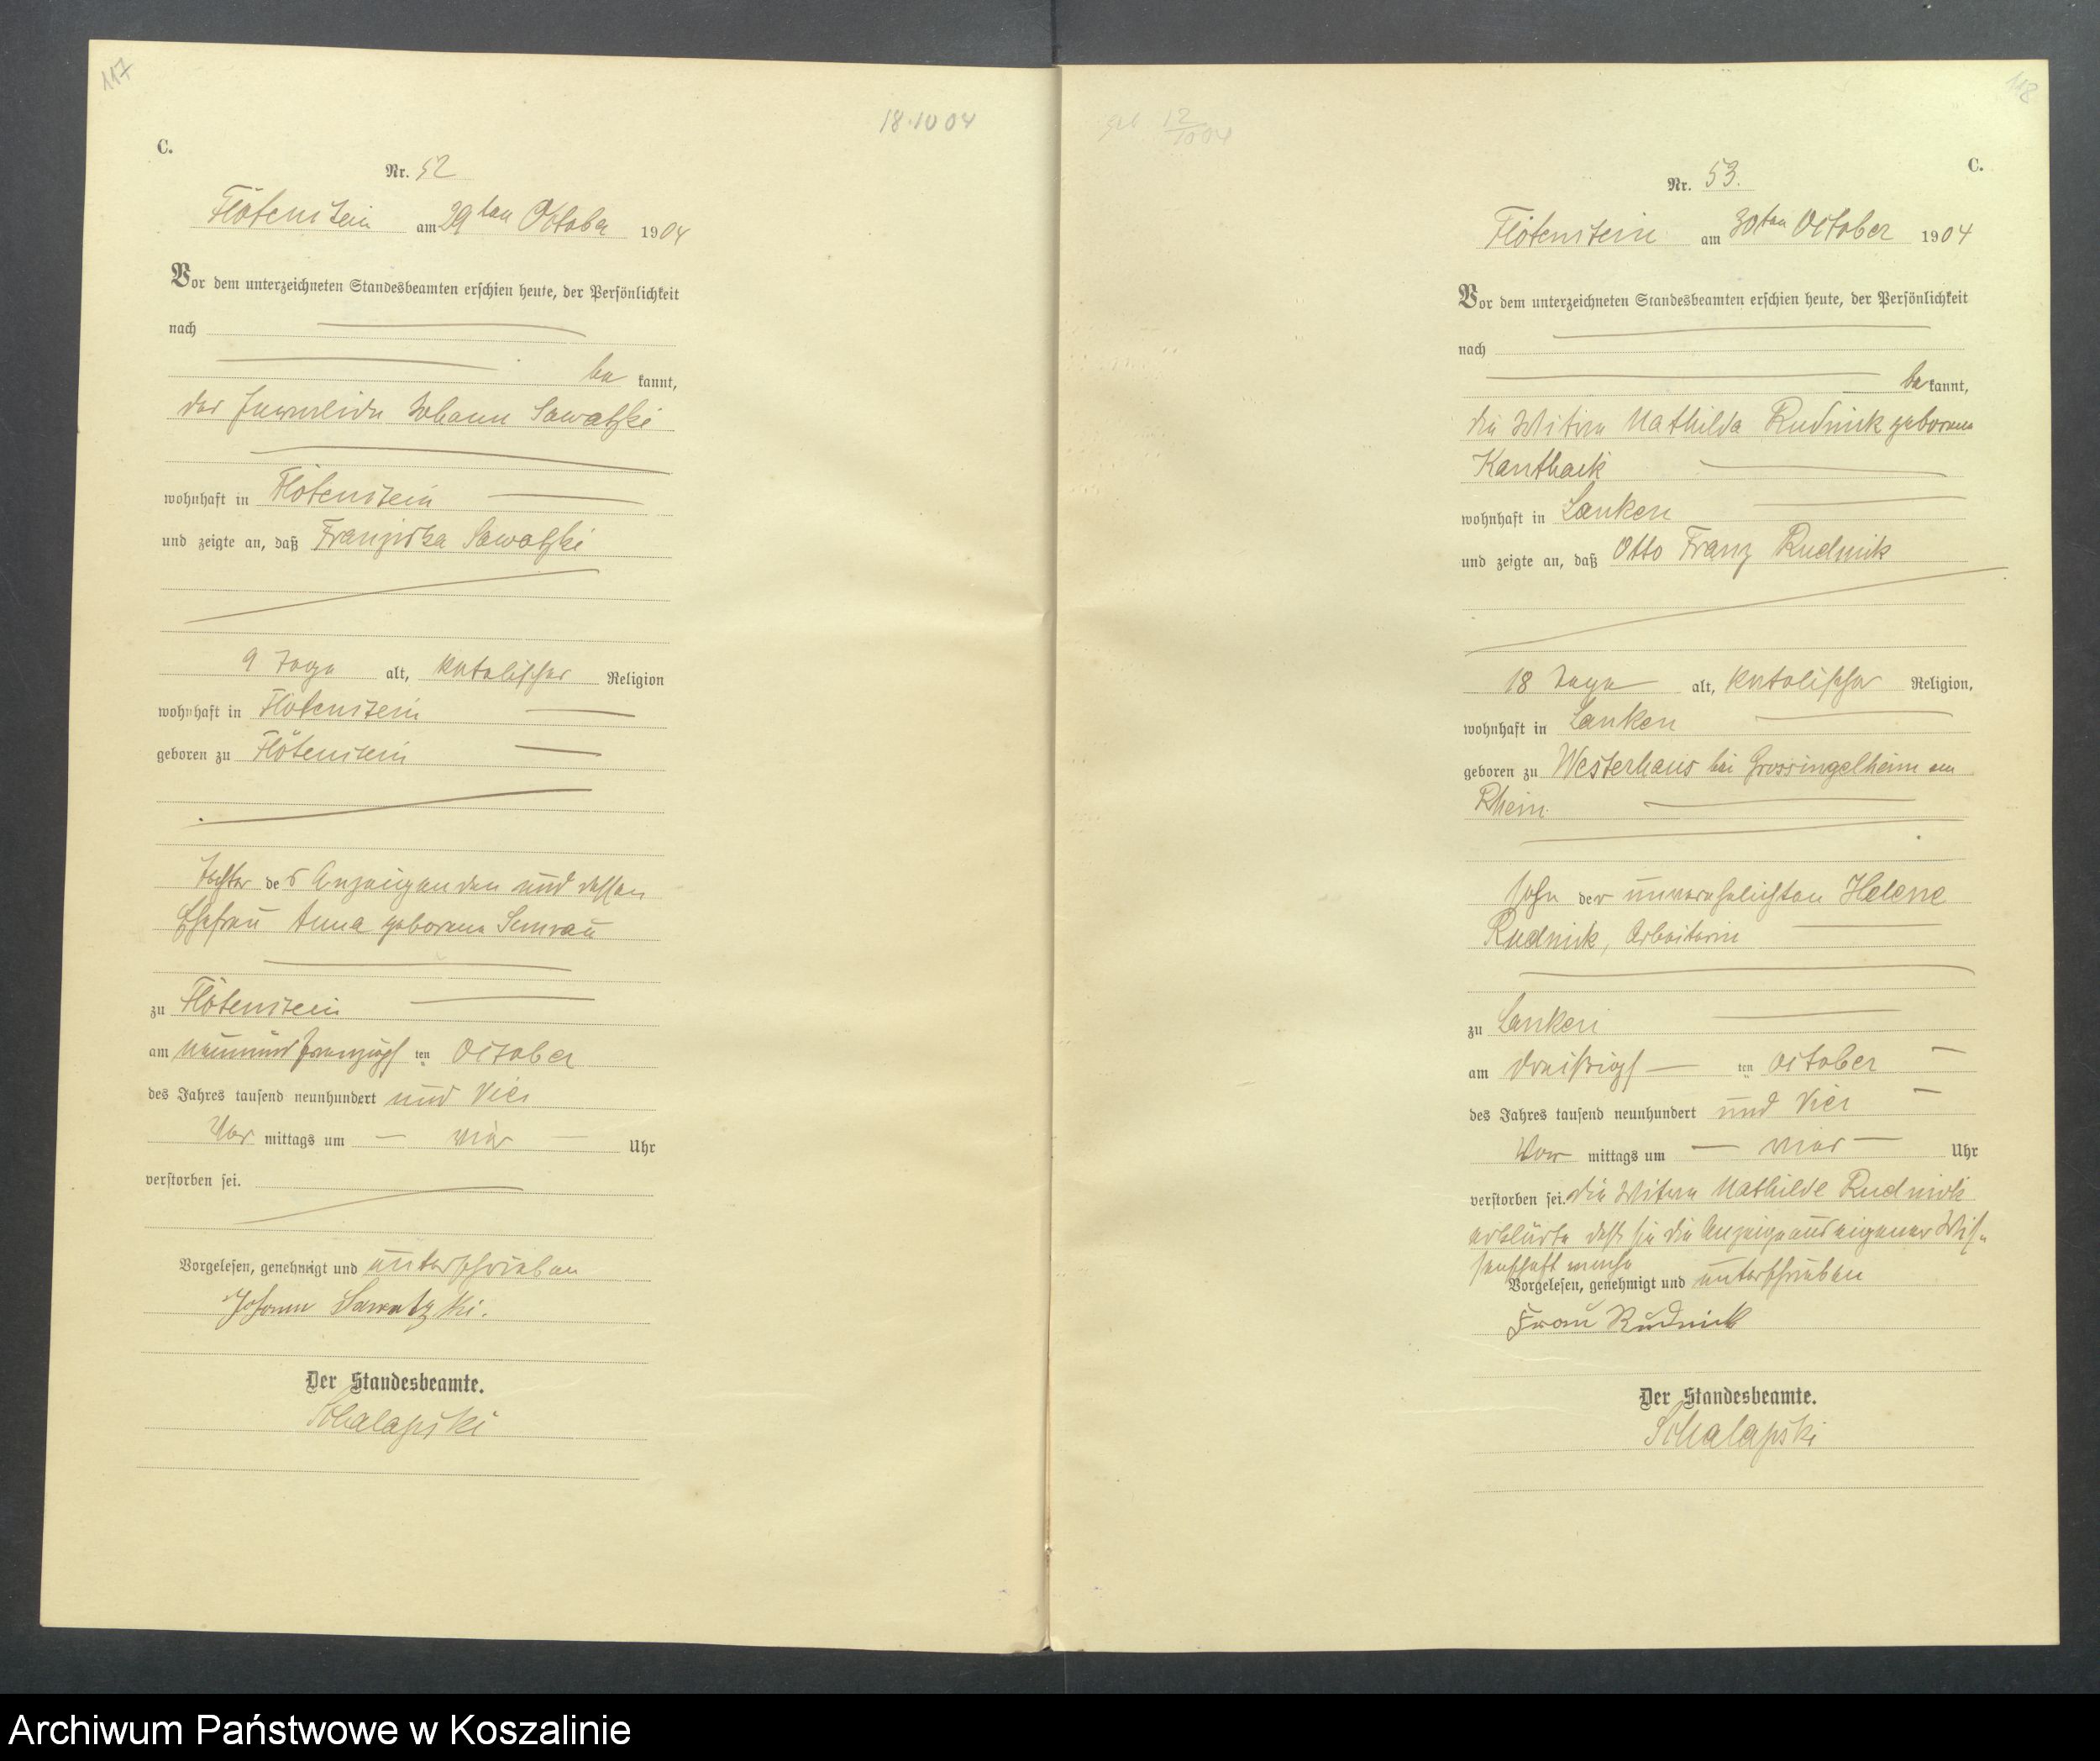 117
18.10 04
C.
Nr. 52
Flötenstein am 29ten October 1904
Vor dem unterzeichneten Standesbeamten erschien heute, der Persönlichkeit
nach
be kannt,
der Johann Sawatzki
wohnhaft in Flötenstein
und zeigte an, daß Franziska Sawatzki
9 Tage alt, katolischer Religion
wohnhaft in Flötenstein
geboren zu Flötenstein
Tochter des Anzeigenden und dessen
Ehefrau Anna geborene Semrau
zu Flötenstein
am neunundzwanzigsten October
des Jahres tausend neunhundert und vier
Vor mittags um vier Uhr
verstorben sei.
Vorgelesen, genehmigt und unterschrieben
Johann Sawatzki.
Der Standesbeamte.
Schalapski
118
geb 12/10 04
C.
Nr. 53.
Flötenstein am 30ten October 1904
Vor dem unterzeichneten Standesbeamten erschien heute, der Persönlichkeit
nach
bekannt,
die Witwe Mathilda Rudnick geborene
Kanthack
wohnhaft in Lanken
und zeigte an, daß Otto Franz Rudnik
18 Tage alt, katolischer Religion,
wohnhaft in Lanken
geboren zu Westerhaus bei Grossingelheim am
Rhein
Sohn der unverehelichten Helene
Rudnick, Arbeiterin
zu Lanken
am dreißigsten October
des Jahres tausend neunhundert und vier
Vor mittags um vier Uhr
verstorben sei. Die Witwe Mathilde Rudnick
erklärte daß sie die Anzeige aus eigener Wis-
senschaft mache
Vorgelesen, genehmigt und unterschrieben
Frau Rudnick
Der Standesbeamte.
Schalapski
Archiwum Państwowe w Koszalinie